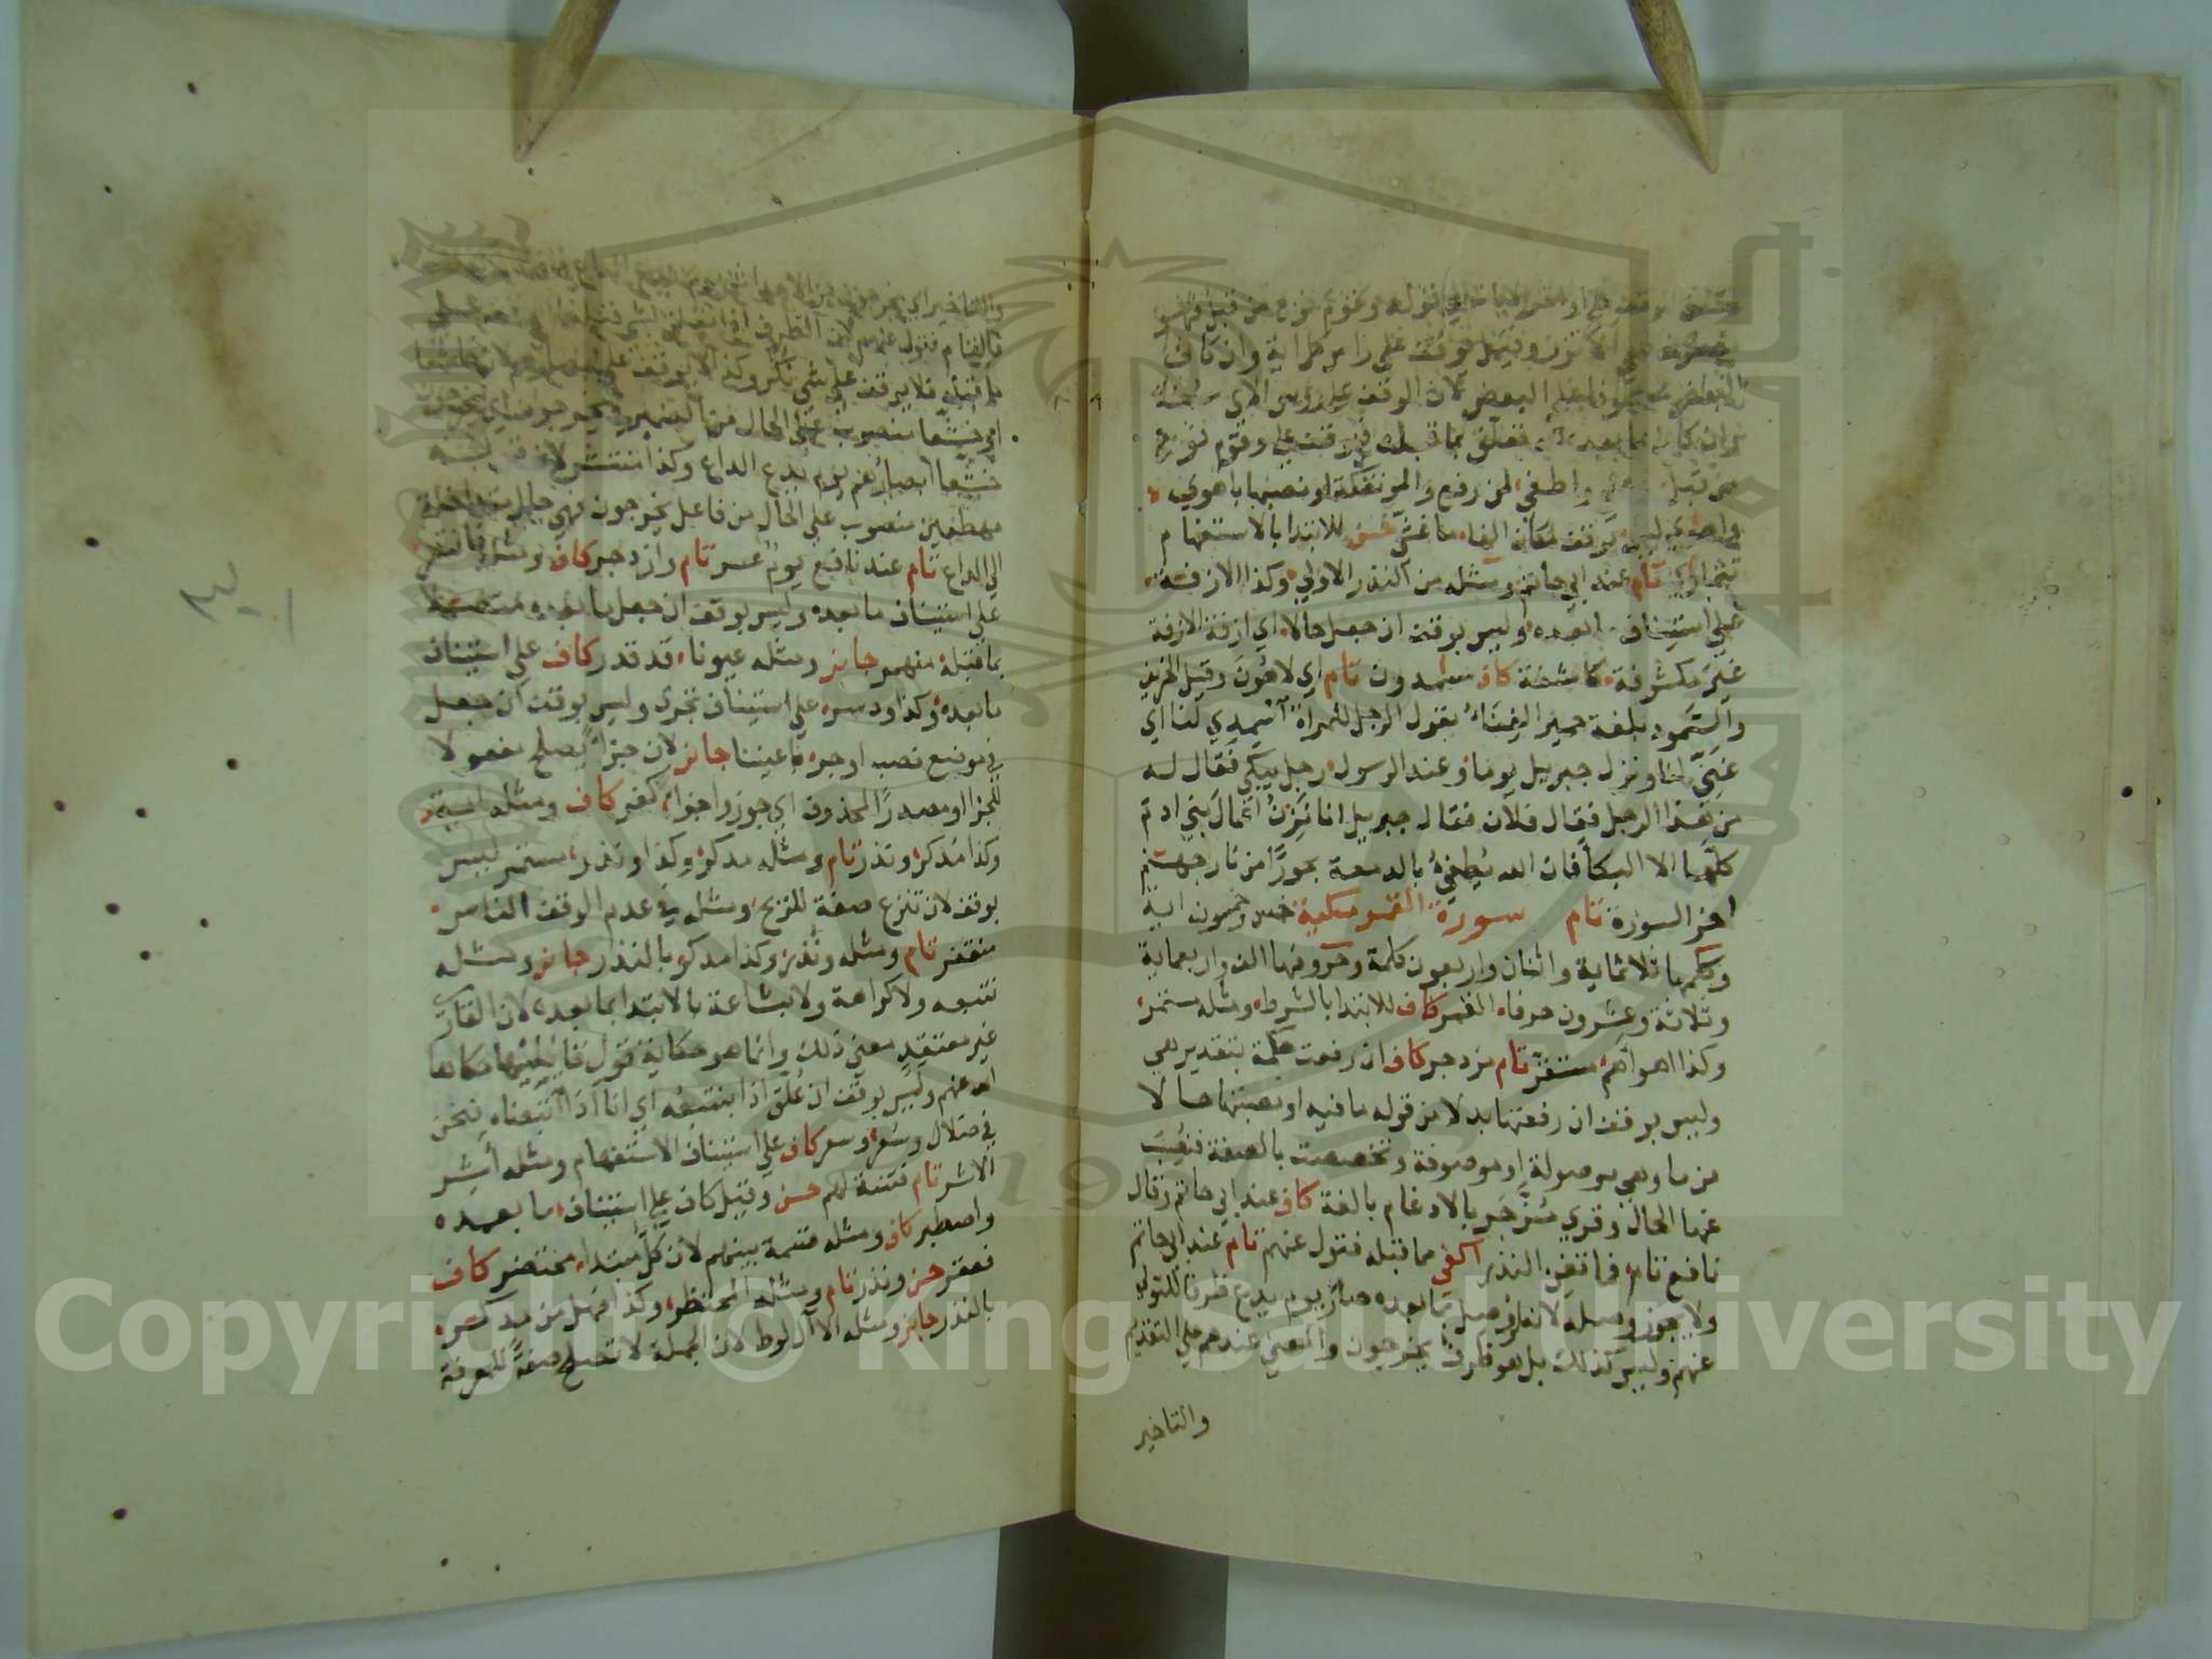 وقوم نوح من قبل
وقيل يوقف على راس كل اية وان كان
البعض على البعض لان الوقف على راس الاي سنة
وان كان ما بعده له تعلق بما قبله فيوقف على وقوم نوح
من قبل واطغى لمن رفع والموتفكة او نصبها باهوى
واهوى ليس بوقف لمكان الفاء ما غشى حسن للابتدا بالاستفهام
تتمارى تام عند ابي حاتم ومثله من النذر الاولى وكذا الازفة
على استيناف ما بعده وليس بوقف ان جعل حالا اي ازفة الازفة
غير مكشوفة كاشفة كاف سامدون تام اي لاهون وقيل الحزين
والسمود بلغة حمير الغناء يقول الرجل للمراة اسمدي لنا اي
غني لنا ونزل جبريل يوما وعند الرسول رجل يبكي فقال له
من هذا الرجل فقال فلان فقال جبريل انا نزن اعمال بني ادم
كلها الا البكا فان الله يطفي بالدمعة بحورا من نار جهنم
اخر السورة تام سورة القمر مكية خمس وخمسون اية
وكلمها ثلاثماية واثنان واربعون كلمة وحروفها الف واربعماية
وثلاثة وعشرون حرفا القمر كاف للابتدا بالشرط ومثله مستمر
وكذا اهواهم مستقر تام مزدجر كاف ان رفعت حكمة بتقدير هي
وليس بوقف ان رفعتها بدلا من قوله ما فيه او نصبتها حالا
من ما وهي موصولة او موصوفة وتخصصت بالصفة فنصب
عنها الحال وقري مزجر بالادغام بالغة كاف عند ابي حاتم وقال
نافع تام فما تغن النذر اكفى مما قبله فتول عنهم تام عند ابي حاتم
ولا يجوز وصله لانه لو وصل بما بعده صار يوم يدع ظرفا للتولي
عنهم وليس كذلك بل هو ظرف يخرجون والمعنى عندهم على التقديم
والتاخير
والتاخير اي يخرجون من الاجداث
فلا يوقف على شي نكر وكذا لا يوقف على
خشعا منصوب على الحال من الضمير في يخرجون اي يخرجون
خشعا ابصارهم يوم يدع الداع وكذا منتشر لان
مهطعين منصوب على الحال من فاعل يخرجون فهي حال متداخلة
الى الداع تام عند نافع يوم عسر تام وازدجر كاف ومثله فانتصر
على استيناف ما بعده وليس بوقف ان جعل ما بعده متصلا
بما قبله منهمر جايز ومثله عيونا قد قدر كاف على استيناف
ما بعده وكذا ودسر على استيناف تجري وليس بوقف ان جعل
في موضع نصب او جر باعيننا جايز لان جزا يصلح مفعولا
للجزا او مصدرا لمحذوف اي جوزوا جزا كفر كاف ومثله اية
وكذا مدكر ونذر تام ومثله مدكر وكذا ونذر مستمر ليس
بوقف لان تنزع صفة للريح ومثله في عدم الوقف الناس
منقعر تام ومثله ونذر وكذا مدكر بالنذر جايز ومثله
نتبعه ولا كراهة ولا بشاعة بالابتدا بما بعده لان القاري
غير معتقد معنى ذلك وانما هو حكاية قول قايليها حكاها
الله عنهم وليس بوقف ان علق اذا بنتبعه اي انا اذا اتبعناه فنحن
في ضلال وسعر وسعر كاف على استيناف الاستفهام ومثله اشر
الاشر تام فتنة لهم حسن وقيل كاف على استيناف ما بعده
واصطبر كاف ومثله قسمة بينهم لان كل مبتدا محتضر كاف
فعقر حسن ونذر تام ومثله المحتظر وكذا فهل من مدكر
بالنذر جايز ومثله الا ال لوط لان الجملة لا تصلح صفة للمعرفة
Copyright © King Saud University